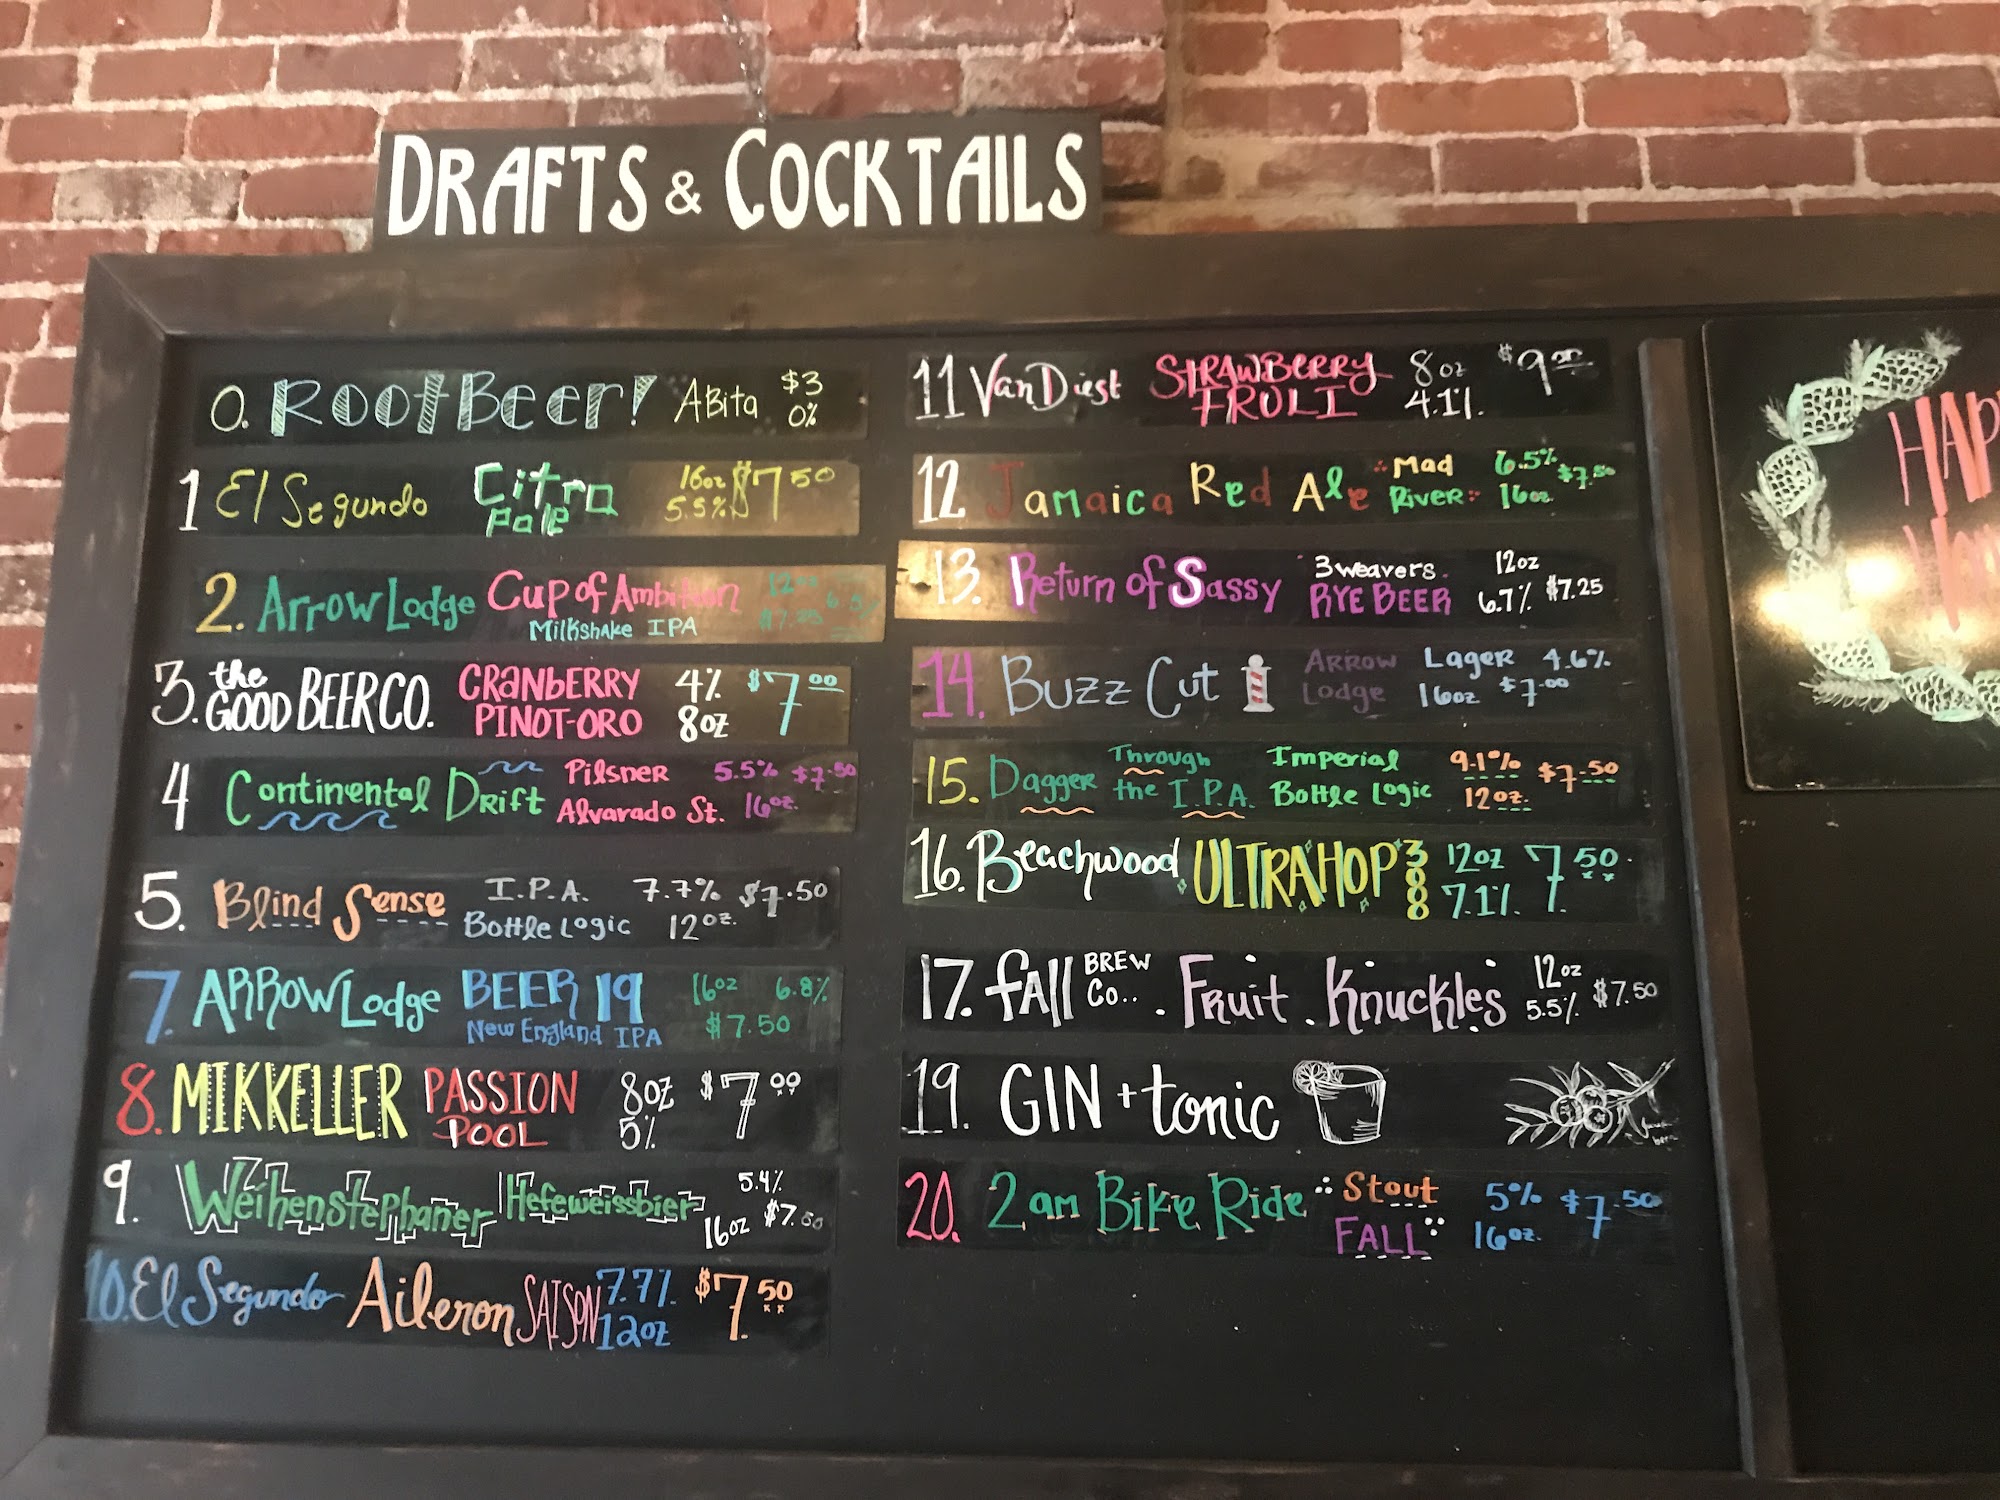 DRAFTS & COCKTAILS
0. RootBeer! ABita $3
0%
1 El Segundo Citra 16oz $7.50
Pale 5.5%
2. Arrow Lodge Cup of Ambition 12oz
Milkshake IPA $7.25 6.5%
3. the GOOD BEER CO. CRANBERRY 4% $7.00
PINOT-ORO 8oz
4 Continental Drift Pilsner 5.5% $7.50
Alvarado St. 16oz.
5. Blind Sense I.P.A. 7.7% $7.50
Bottle Logic 12oz.
7. ARROW Lodge BEER 19 16oz 6.8%
New England IPA $7.50
8. MIKKELLER PASSION 8oz $7.00
POOL 5%
9. Weihenstephaner Hefeweissbier 5.4%
16oz $7.50
10. El Segundo Aileron SAISON 7.7% $7.50
12oz
11 Van Diest STRAWBERRY 8oz $9.00
FRULI 4.1%
12 Jamaica Red Ale Mad 6.5% $7.50
River 16oz.
13. Return of Sassy 3 weavers. 12oz
RYE BEER 6.7% $7.25
14. Buzz Cut Arrow Lager 4.6%
Lodge 16oz $7.00
15. Dagger Through Imperial 9.1% $7.50
the I.P.A. Bottle Logic 12oz.
16. Beachwood ULTRAHOP 3000 12oz 7.50
7.1%
17. fAll BREW Co.. Fruit . Knuckles 12oz $7.50
5.5%
19. GIN + tonic
20. 2am Bike Ride Stout 5% $7.50
FALL 16oz.